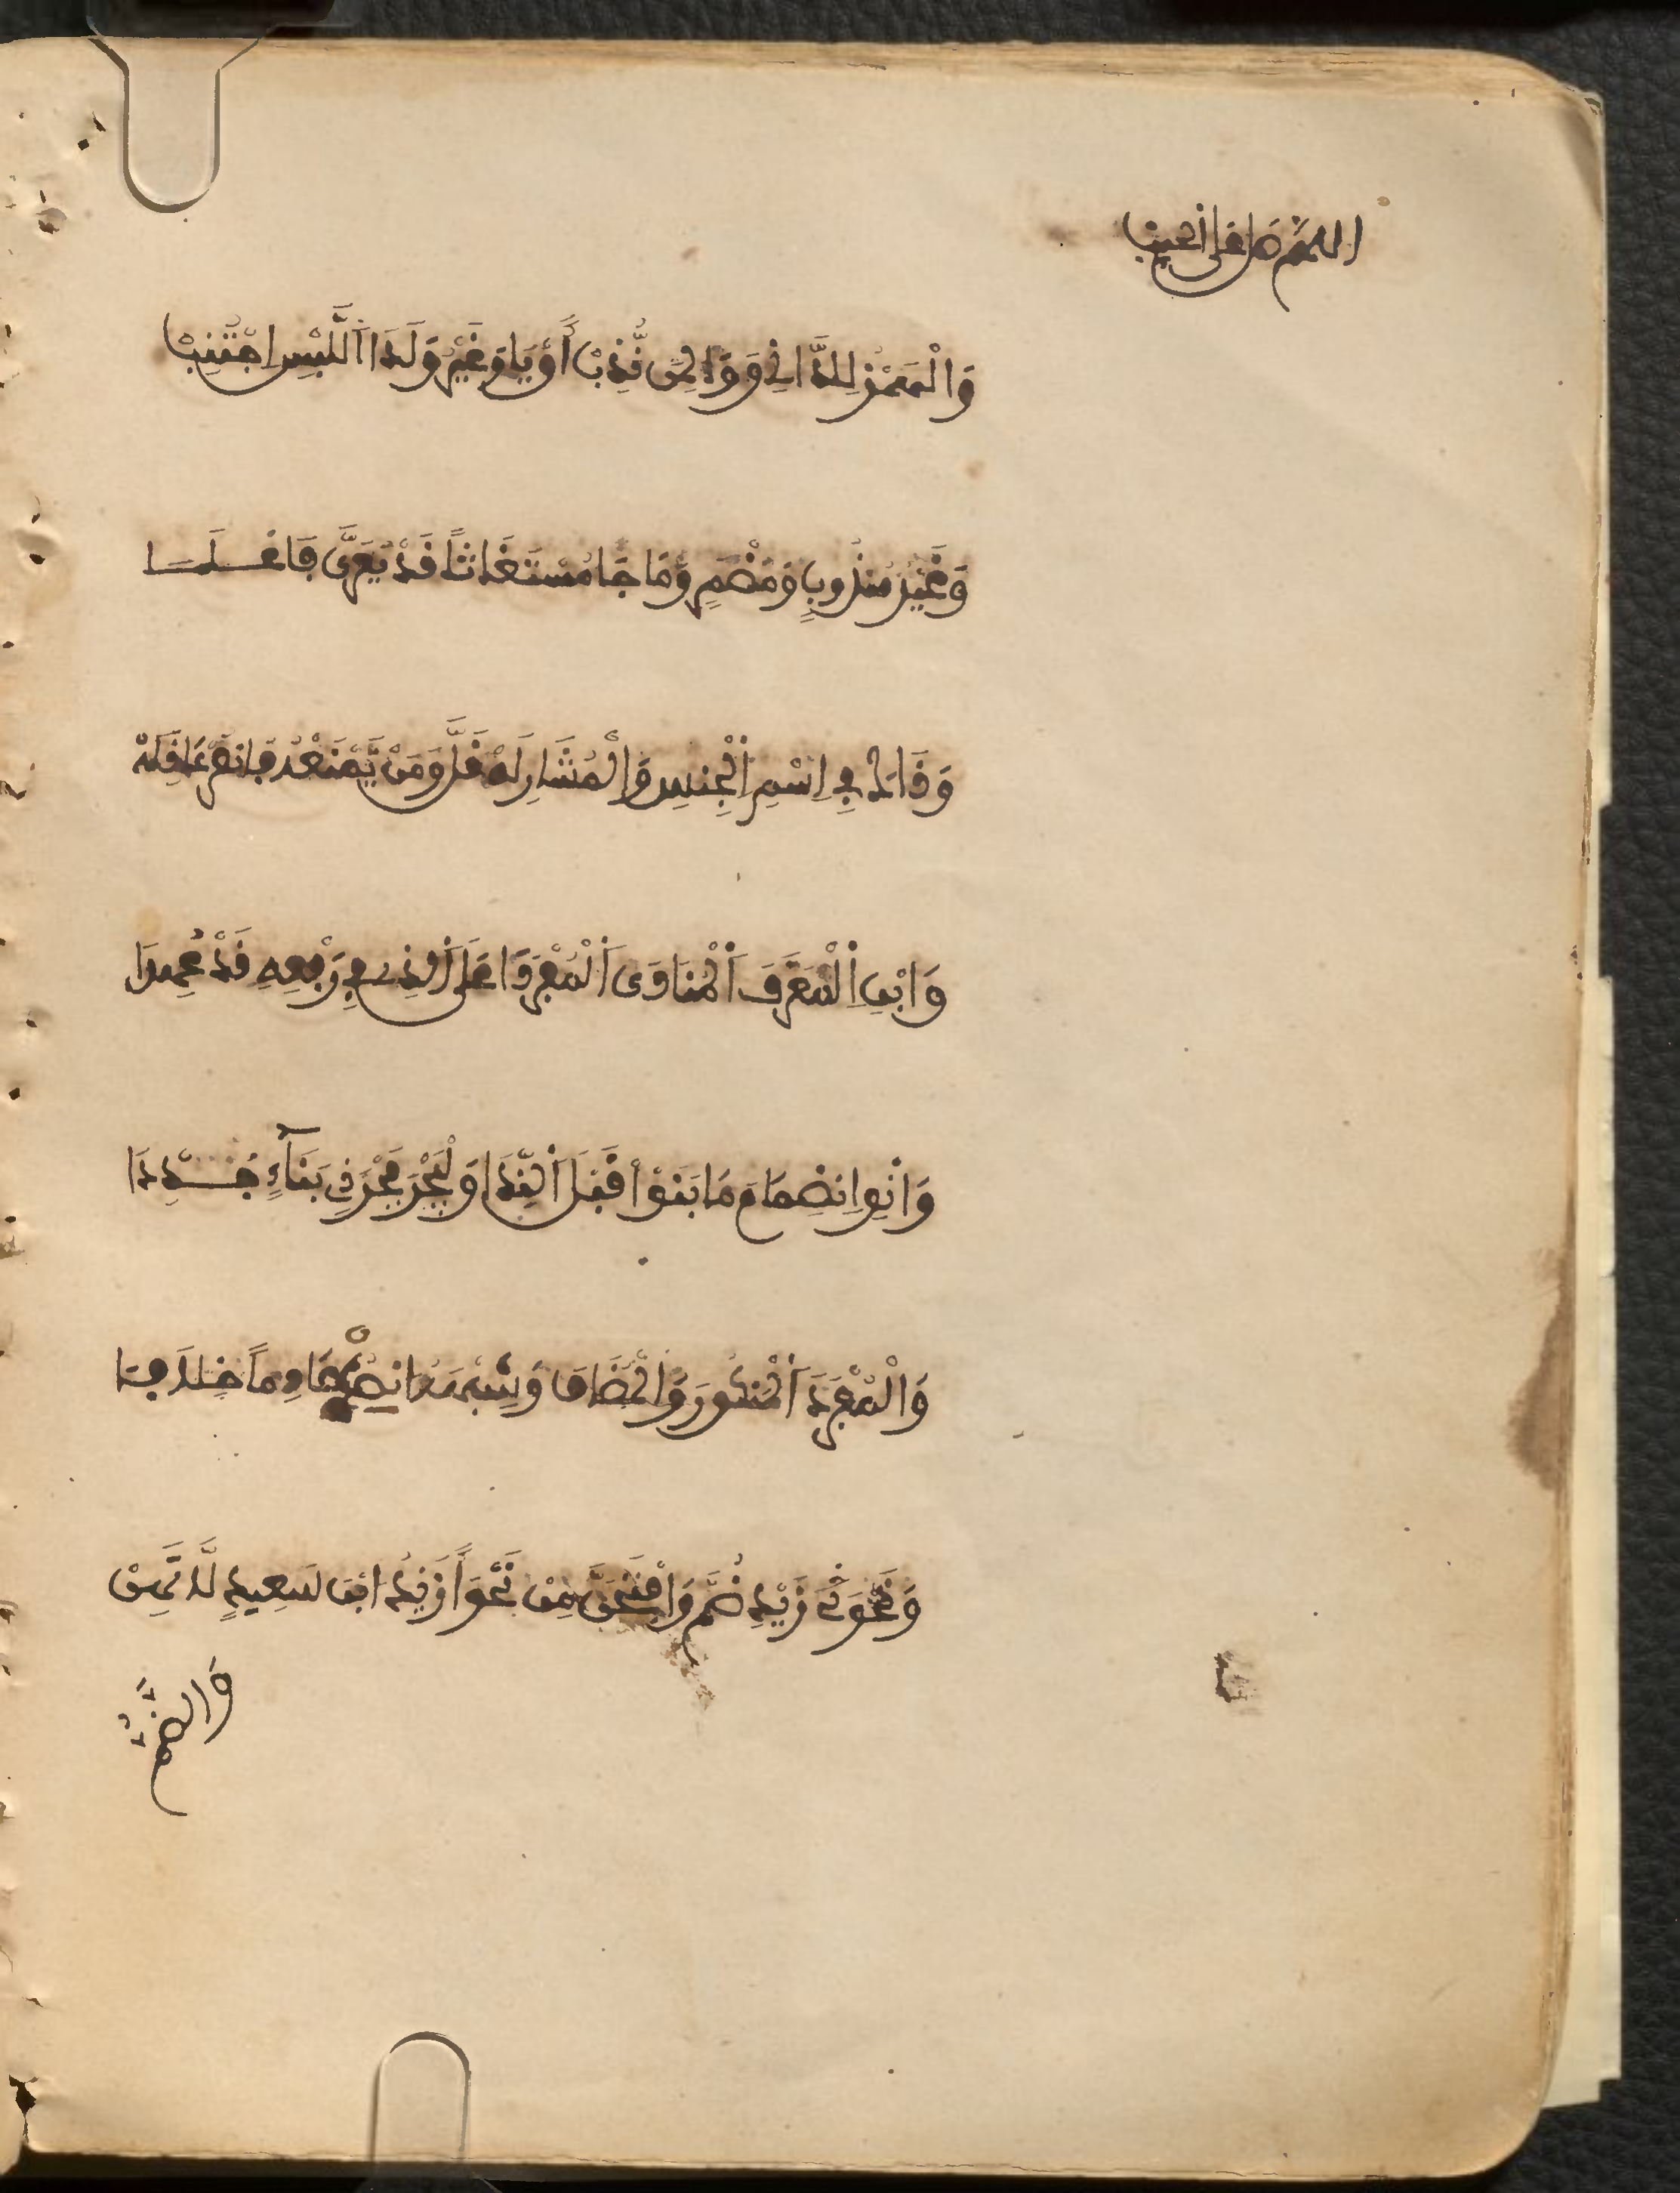 اللهم صل على الحبيب
وَالْهَمْزُ لِلدَّانِي وَوَا لِمَنْ نُّدِبْ أَوْ يَا وَغَيْرُ وَا لَدَا اَللَّبْسِ اجْتُنِبْ
وَغَيْرُ مَنْدُوبٍ وَمُضْمَرٍ وَمَا جَا مُسْتَغَاثاً قَدْ يُعَرَّى فَاعْلَمَا
وَذَاكَ فِي اِسْمِ اِلْجِنسِ وَالْمُشَارِ لَهْ قَلَّ وَمَنْ يَّمْنَعْهُ فَانصُرْ عَاذِلَهْ
وَابْنِ اِلْمُعَرَّفَ اَلْمُنَادَى اَلْمُفْرَدَا عَلَى اَلذِي فِي رَفْعِهِ قَدْ عُهِدَا
وَانْوِ اِنضِمَامَ مَا بَنَوْا قَبْلَ اَلنِّدَا وَلْيُجْرَ مُجْرَى ذِي بَنَآءٍ جُدِّدَا
وَالْمُفْرَدَ اَلْمَنكُورَ وَالْمُضَافَا وَشِبْهَهُ انصِبْ عَادِماً خِلَافَا
وَنَحْوَ زَيْدٍ ضُمَّ وَافْتَحَنَّ مِنْ نَحْوِ أَزَيْدُ ابْنَ سَعِيدٍ لَّا تَهِنْ
وَالضَّمُّ